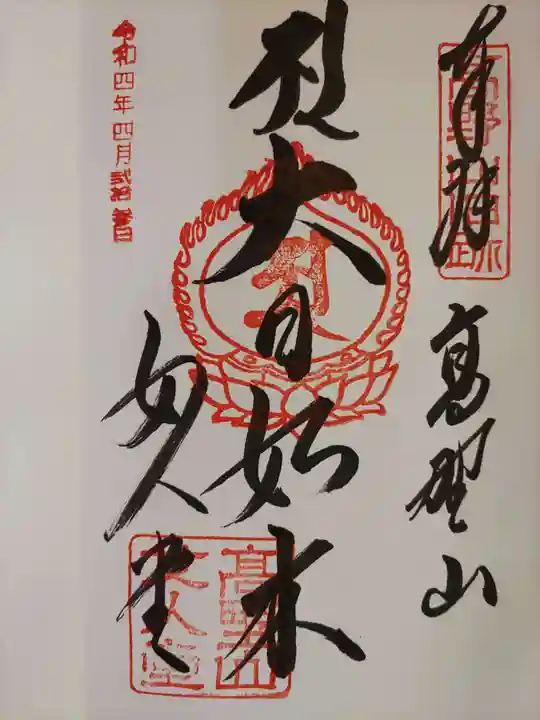 奉拝
高野山
大日如来
女人堂
高野山
女人堂
令和四年四月弐拾参日